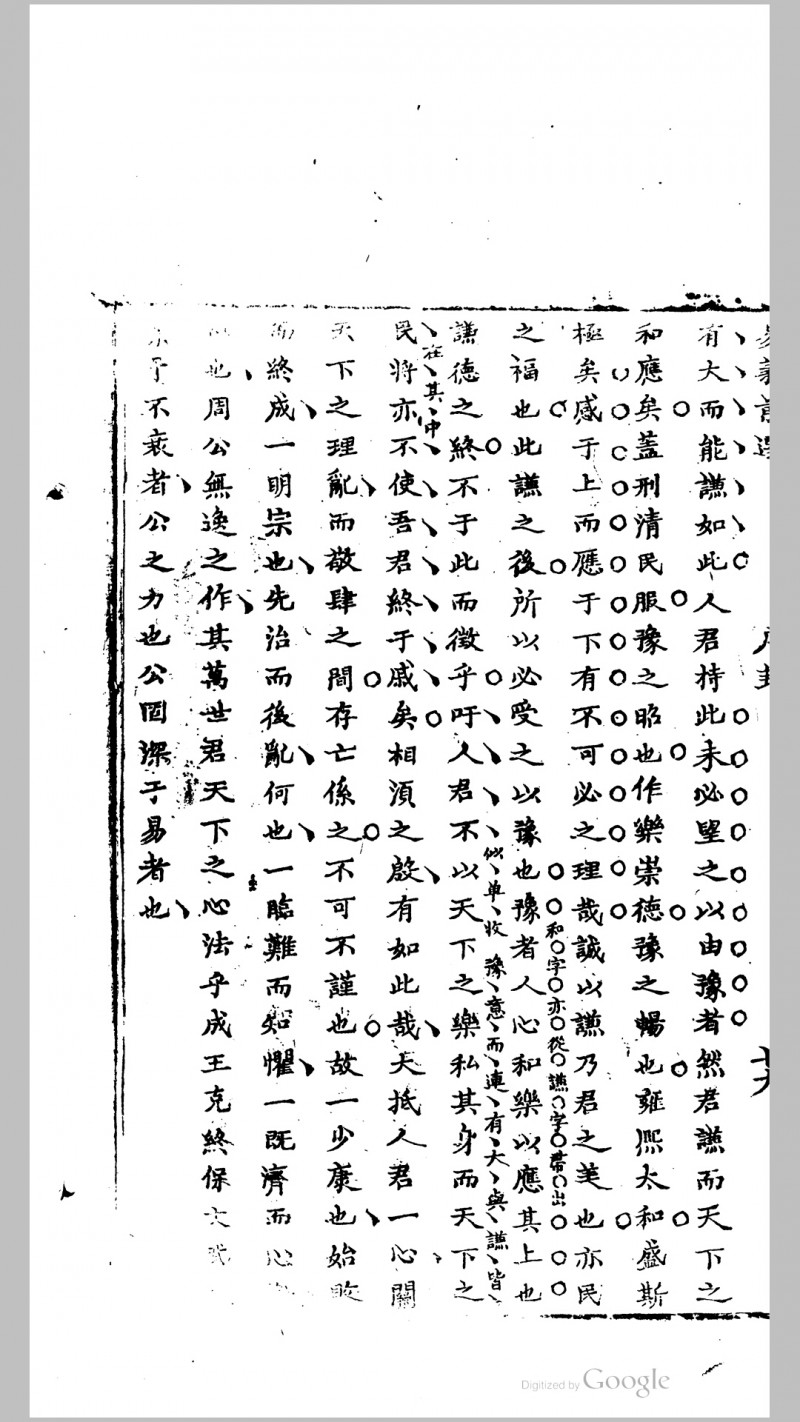 有大而能謙如此人君持此未必望之以由豫者然君謙而天下之
和應矣蓋刑清民服豫之昭也作樂崇德豫之暢也雍熈太和盛斯
極矣感于上而應于下有不可必之理哉誠以謙乃君之美也亦民
和字亦從謙字帶出
之福也此謙之後所以必受之以豫也豫者人心和樂以應其上也
似單收豫意而連有大與謙皆
在其中
謙德之終不于此而徵乎吁人君不以天下之樂私其身而天下之
民將亦不使吾君終于戚矣相湏之啟有如此哉大抵人君一心關
天下之理亂而敬肆之間存亡係之不可不謹也故一少康也始敗
而終成一明宗也先治而後亂何也一臨難而知懼一既濟而心
也周公無逸之作其萬世君天下之心法乎成王克終保文武
于不衰者公之力也公固深于易者也
Digitized by Google